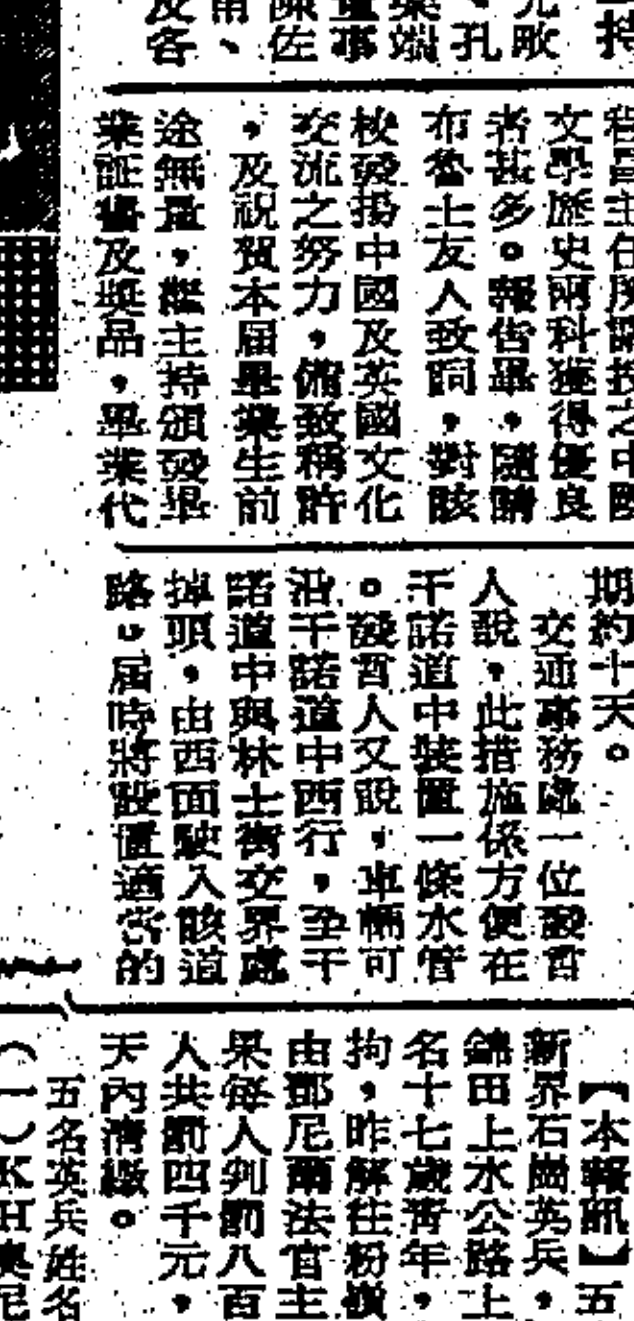 持
元歐
、孔
葉端
董事
陳佐
甫、
及客
程昌主任及講授之中國
文學歷史兩科獲得優良
者甚多。報告畢，隨請
布魯士友人致詞，對該
校發揚中國及英國文化
交流之努力，備致稱許
，及祝賀本屆畢業生前
途無量，繼主持頒發畢
業証書及獎品，畢業代
期約十天。
交通事務處一位發言
人說，此措施係方便在
干諾道中裝置一條水管
。發言人又說，車輛可
沿干諾道中西行，至干
諾道中與林士街交界處
掉頭，由西面駛入該道
路。屆時將設置適當的
【本報訊】五
新界石崗英兵，
錦田上水公路上
名十七歲青年，
拘，昨解往粉嶺
由鄧尼爾法官主
果每人判罰八百
人共罰四千元，
天內清繳。
五名英兵姓名
（一）KH奧尼